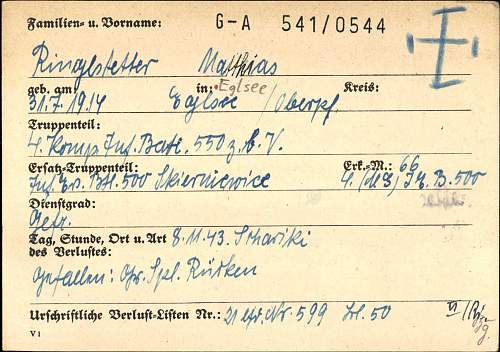 Familien- u. Vorname: G-A 541/0544
Ringlstetter Matthias
geb. am: in: Eglsee Kreis:
31.7.1914 Eglsee / Oberpf.
Truppenteil:
4. Komp. Inf. Batl. 550 z. b. V.
Ersatz-Truppenteil: Erk.-M.: 66
Inf. Ers. Btl. 500 Skierniewice 4. (MG) J. E. B. 500
Dienstgrad:
Gefr.
Tag, Stunde, Ort u. Art 8.11.43. Schariki
des Verlustes:
Gefallen: Gr. Spl. Rücken
Urschriftliche Verlust-Listen Nr.: 21 lfd. Nr. 599 Bl. 50
V 1